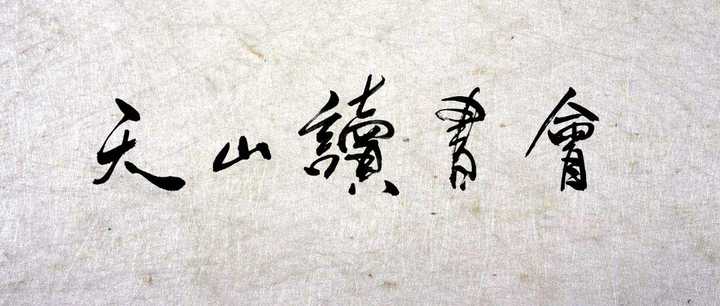 天山讀書會